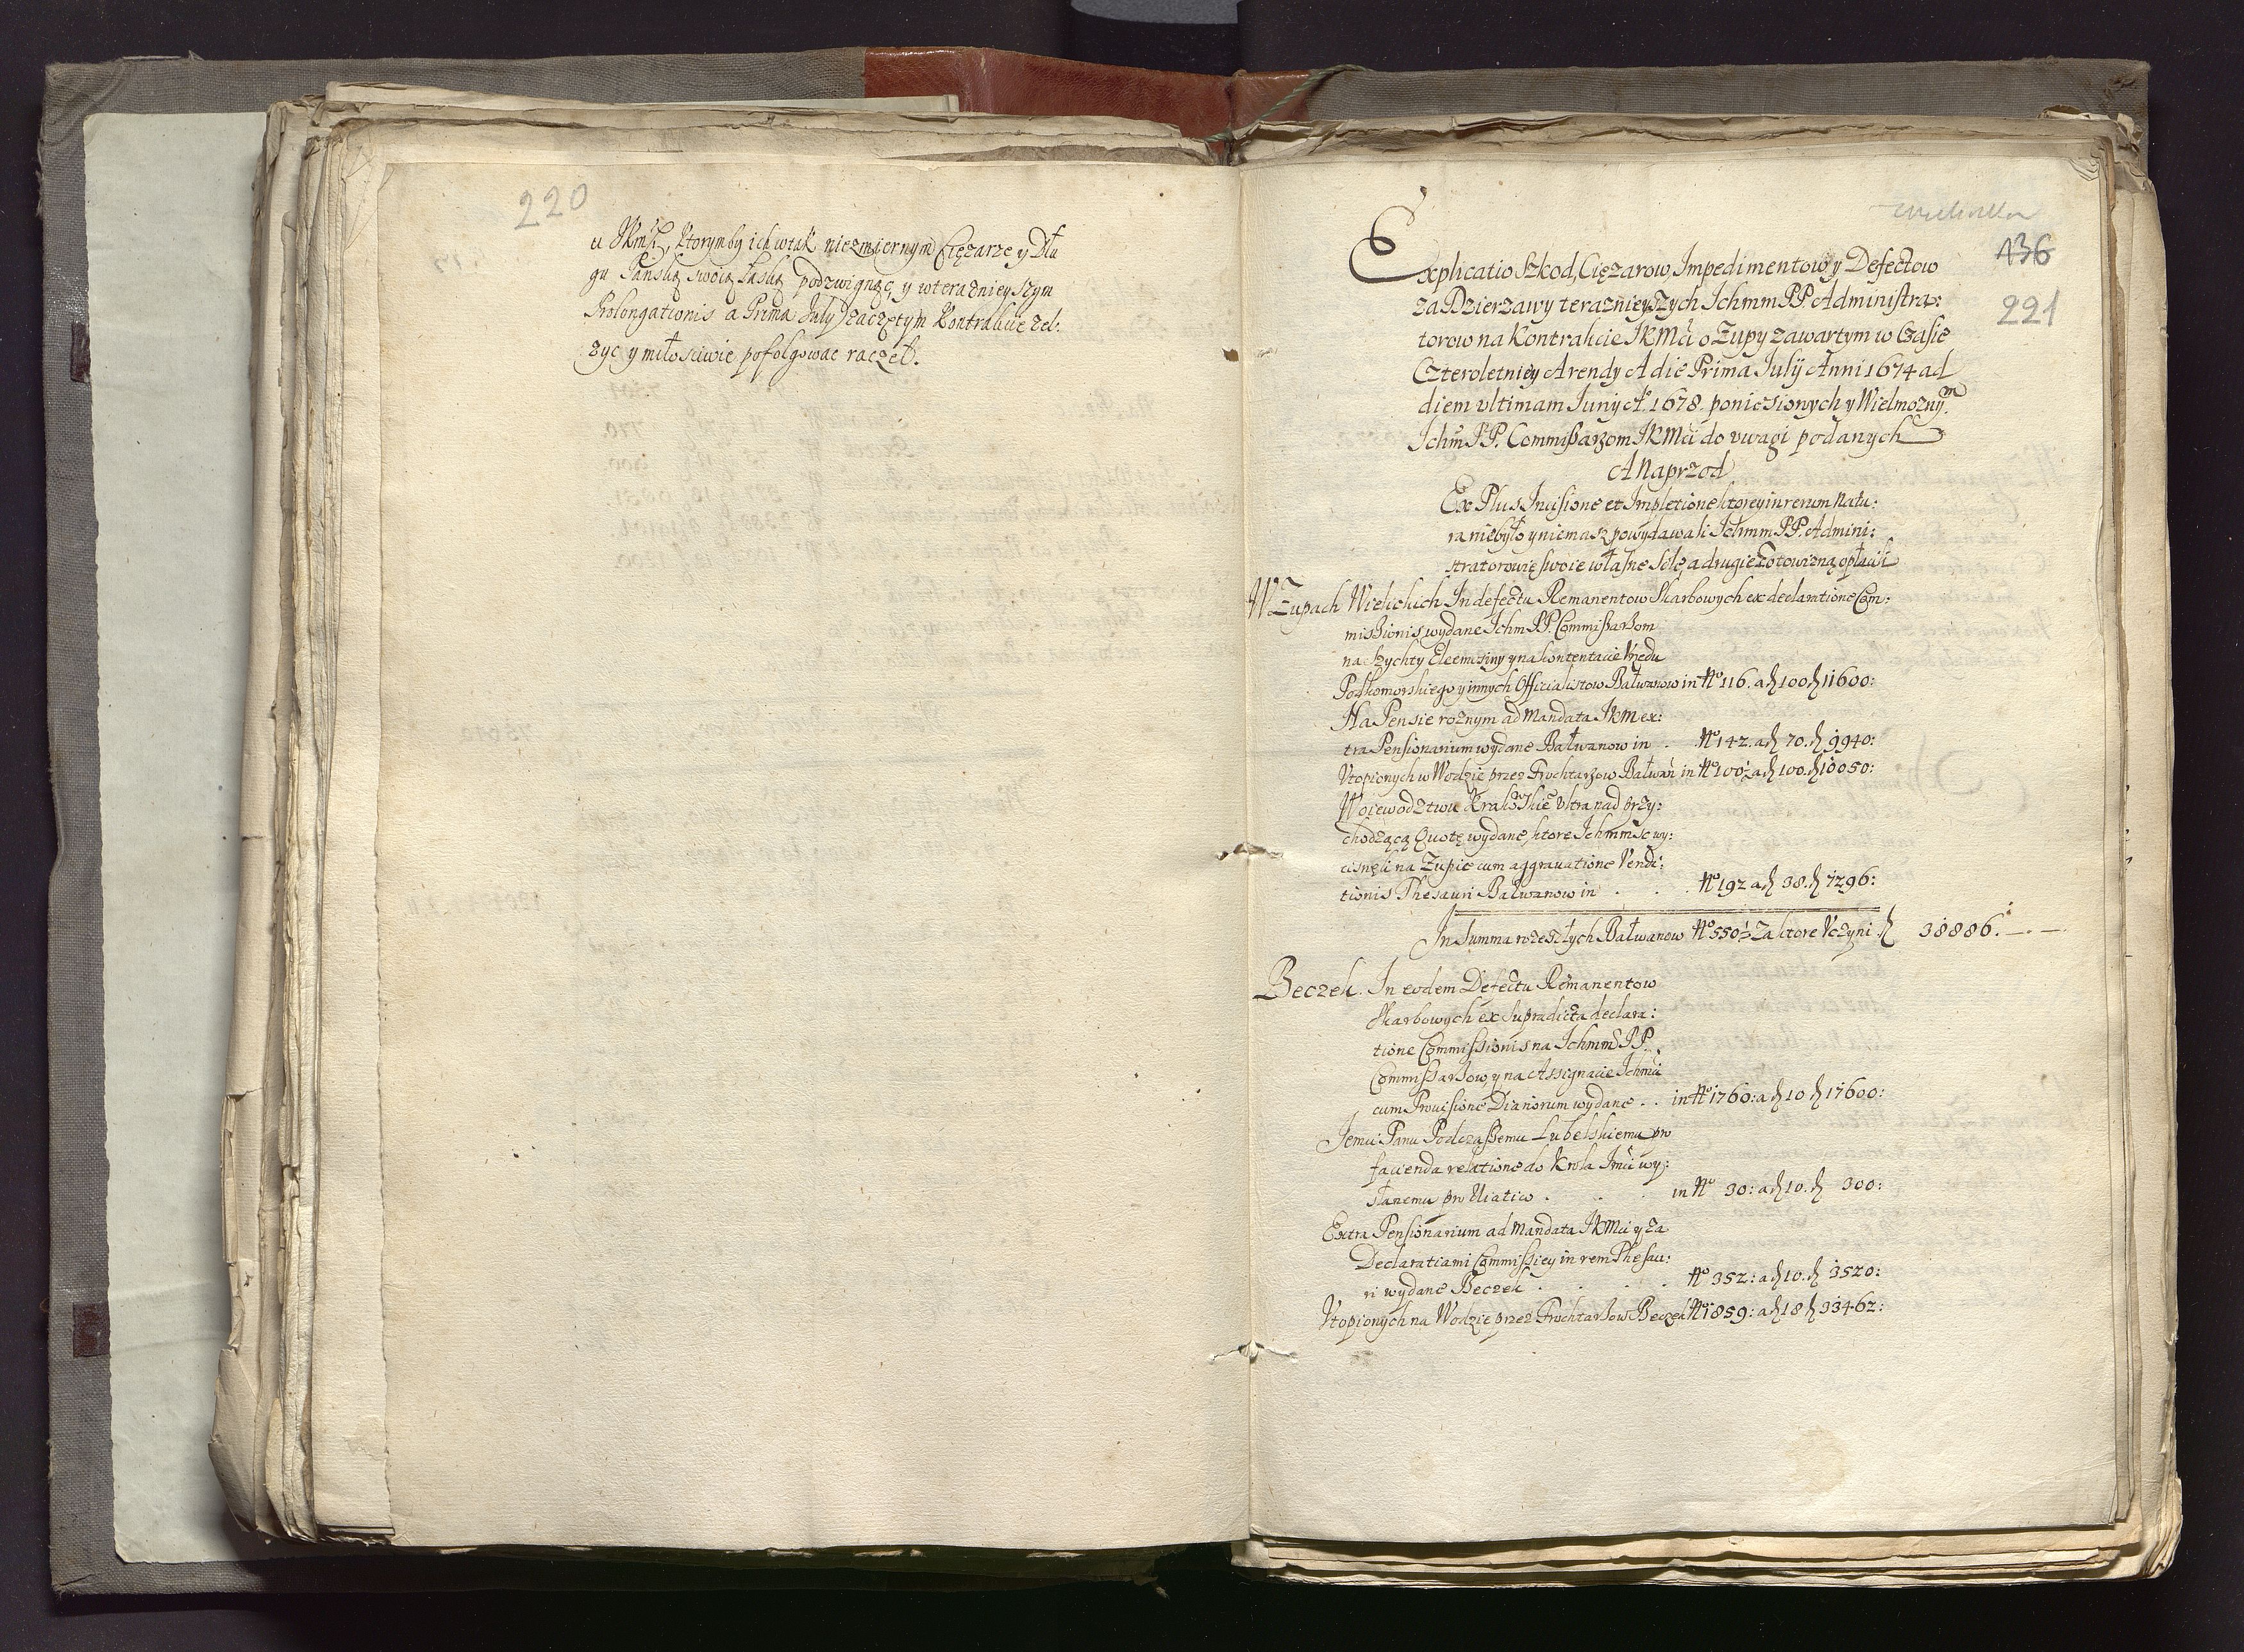 220
u JKmści, ktorymby ich wtak niezmiernym Ciężarze y Dłu
gu Pańską swoią łaską podzwignąc, y wteraznieyszym
Prolongationis a Prima July zaczętym Kontrakcie zel:
zyc y miłosciwie pofolgowac raczeł.
136
221
Explicatio Szkod, Ciężarow, Impedimentow y Defectow
za Dzierzawy teraznieyszych Ichmm PP Administra:
torow na Kontrakcie JKMci o Zupy zawartym w Czasie
Czteroletniey Arendy A die Prima Julij Anni 1674 ad
diem vltimam Juny Aº. 1678. poniesionych y Wielmożnym
Ichm PP. Commissarzom JKMci do vwagi podanych
A Naprzod
Ex Plus Incisione et Impletione ktorey in rerum Natu:
ra niebyło y niemasz powydawali Ichmm PP. Admini:
stratorowie swoie własne Sole, a drugie Gotowizną opłacili
W Zupach Wielickich In defectu Remanentow Skarbowych ex declaratione Com:
missionis wydane Ichm PP. Commissarzom
na Szychty Eleemosiny y na kontentacie Vrzedu
Podkomorskiego y innych Officialistow Bałwanow in Nº 116. a ƒ 100 ƒ 11600:
Na Pensie roznym ad Mandata JKM ex:
tra Pensionarium wydane Bałwanow in . Nº 142. a ƒ 70. ƒ 9940:
Vtopionych w Wodzie przez Frochtarzow Bałwan in Nº 100½ a ƒ 100. ƒ 10050:
Woiewodztwu Krakowskie Vltra nad przy:
chodzącą Quotę wydane, ktore Ichmmsc wy:
cisnęli na Zupie cum aggrauatione Vendi:
tionis Thesauri Bałwanow in . . . Nº 192 a ƒ 38. ƒ 7296:
In Summa rozeszłych Bałwanow Nº 550½ Za ktore Vczyni ƒ 38886. — . —
Beczek. In eodem Defectu Remanentow
Skarbowych ex Supradicta declara:
tione Commissionis na Ichmm PP.
Commissarzow, y na Assignacie Ichmci
cum Prouisione Dianorum wydane . . in Nº 1760: a ƒ 10 ƒ 17600:
Jemu Panu Podczaszemu Lubelskiemu pro
facienda relatione do Krola Jmci wy:
słanemu pro Viatico . . . in Nº 30: a ƒ 10. ƒ 300:
Extra Pensionarium ad Mandata JKMci y za
Declaratiami Commissiey in rem Thesau:
ri wydane Beczek . . . . Nº 352: a ƒ 10. ƒ 3520:
Vtopionych na Wodzie przez Frochtarzow Beczek Nº 1859: a ƒ 18 ƒ 33462: